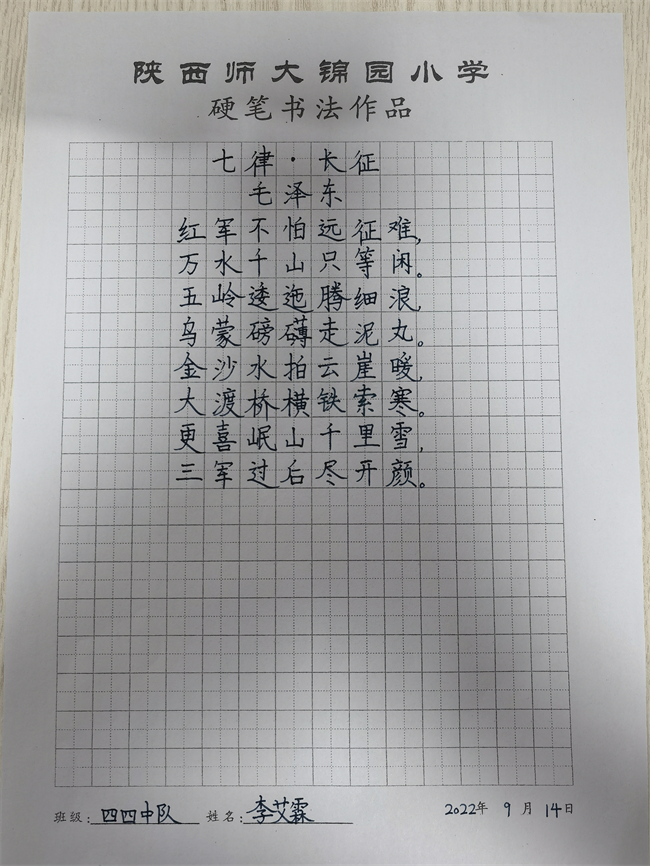 陕西师大锦园小学
硬笔书法作品
七律·长征
毛泽东
红军不怕远征难,
万水千山只等闲。
五岭逶迤腾细浪,
乌蒙磅礴走泥丸。
金沙水拍云崖暖,
大渡桥横铁索寒。
更喜岷山千里雪,
三军过后尽开颜。
班级:四四中队 姓名:李艾霖 2022年 9月 14日